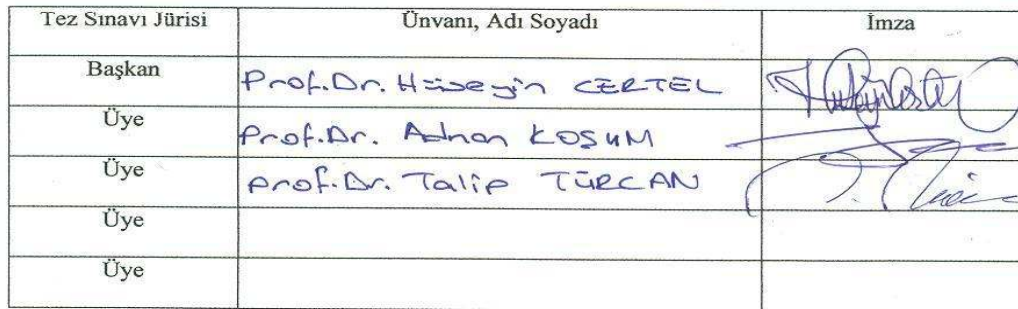 Tez Sınavı Jürisi Ünvanı, Adı Soyadı İmza
Başkan Prof.Dr. Hüseyin CERTEL
Üye Prof.Dr. Adnan KOŞUM
Üye Prof.Dr. Talip TÜRCAN
Üye
Üye